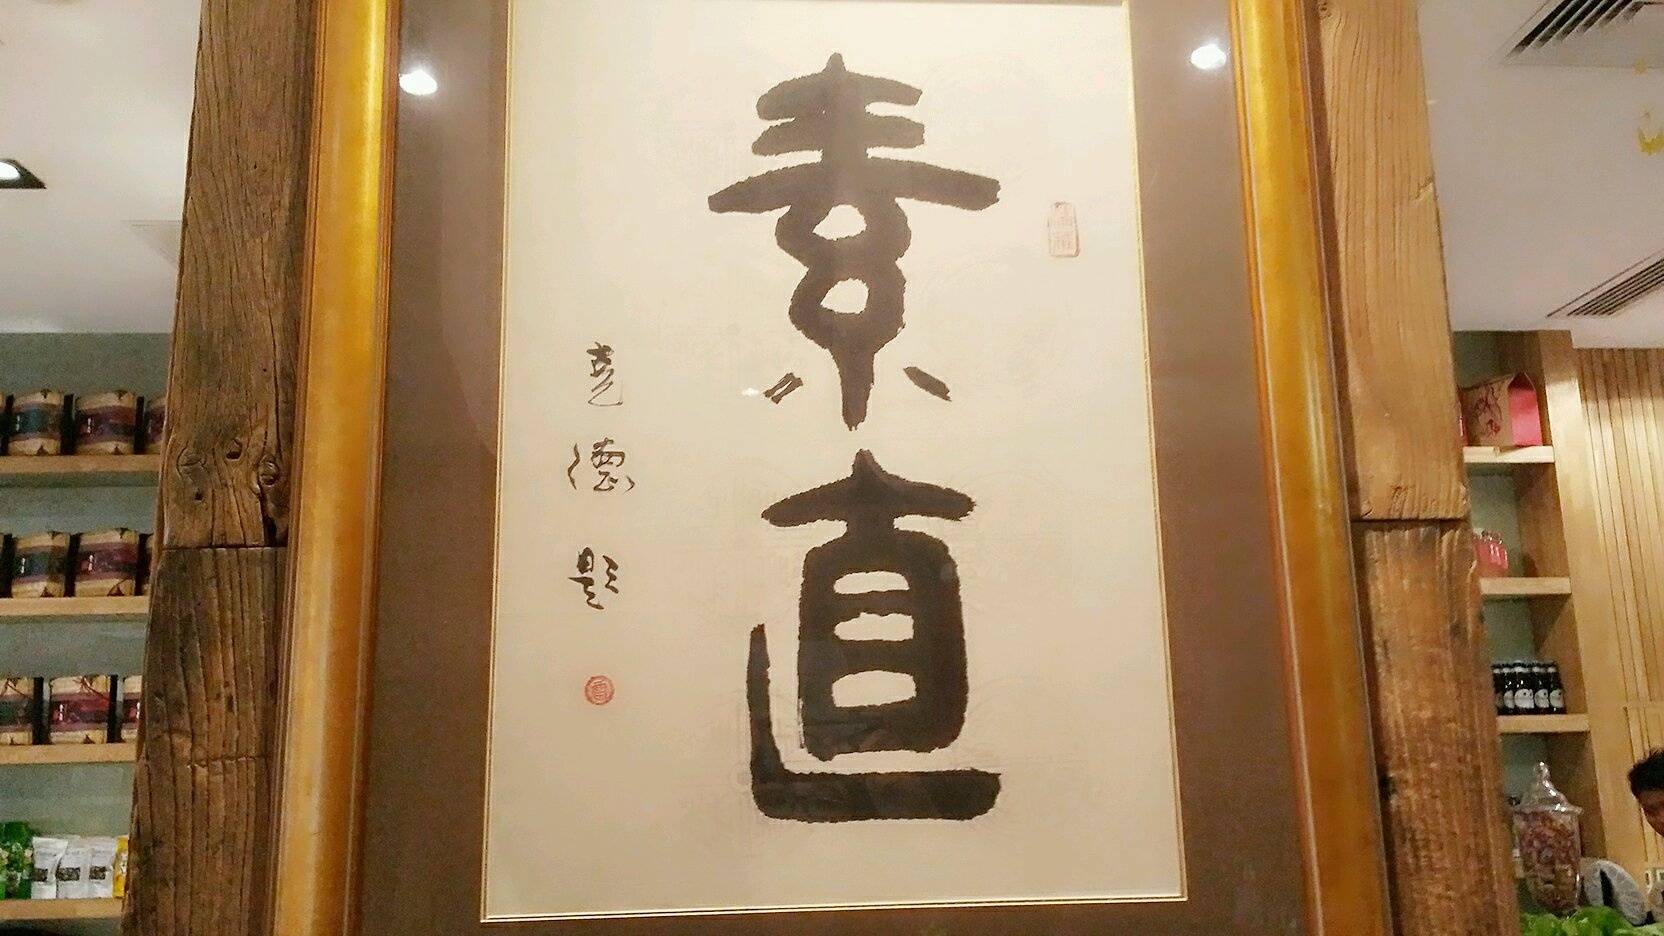 素直
堯德題